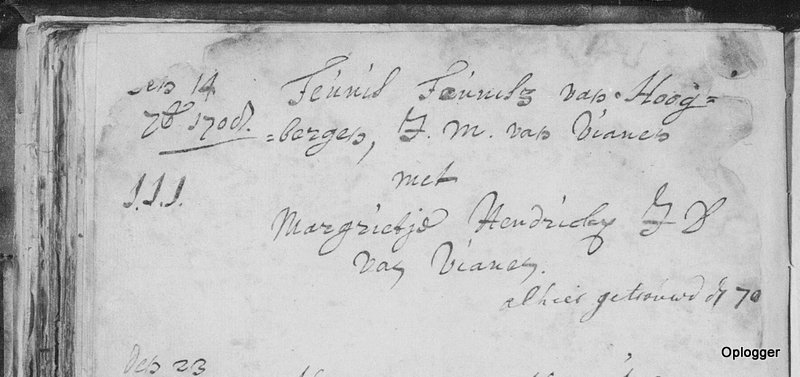 den 14
7br 1708.
J.J.J.
Teunis Teunisz van Hoog=
=bergen, J. M. van Vianen
met
Margrietje Hendricks J D
van Vianen.
alhier getrouwd d 7
den 23
Oplogger